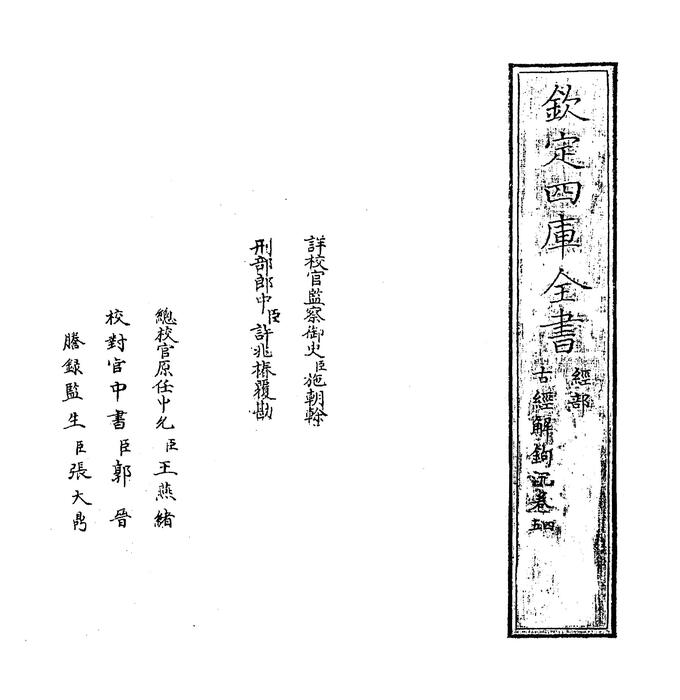 欽定四庫全書
經部
古經解鉤沉卷四五
詳校官監察御史臣施朝幹
刑部郎中臣許兆椿覆勘
總校官原任中允臣王燕緒
校對官中書臣郭晉
謄録監生臣張大鼎